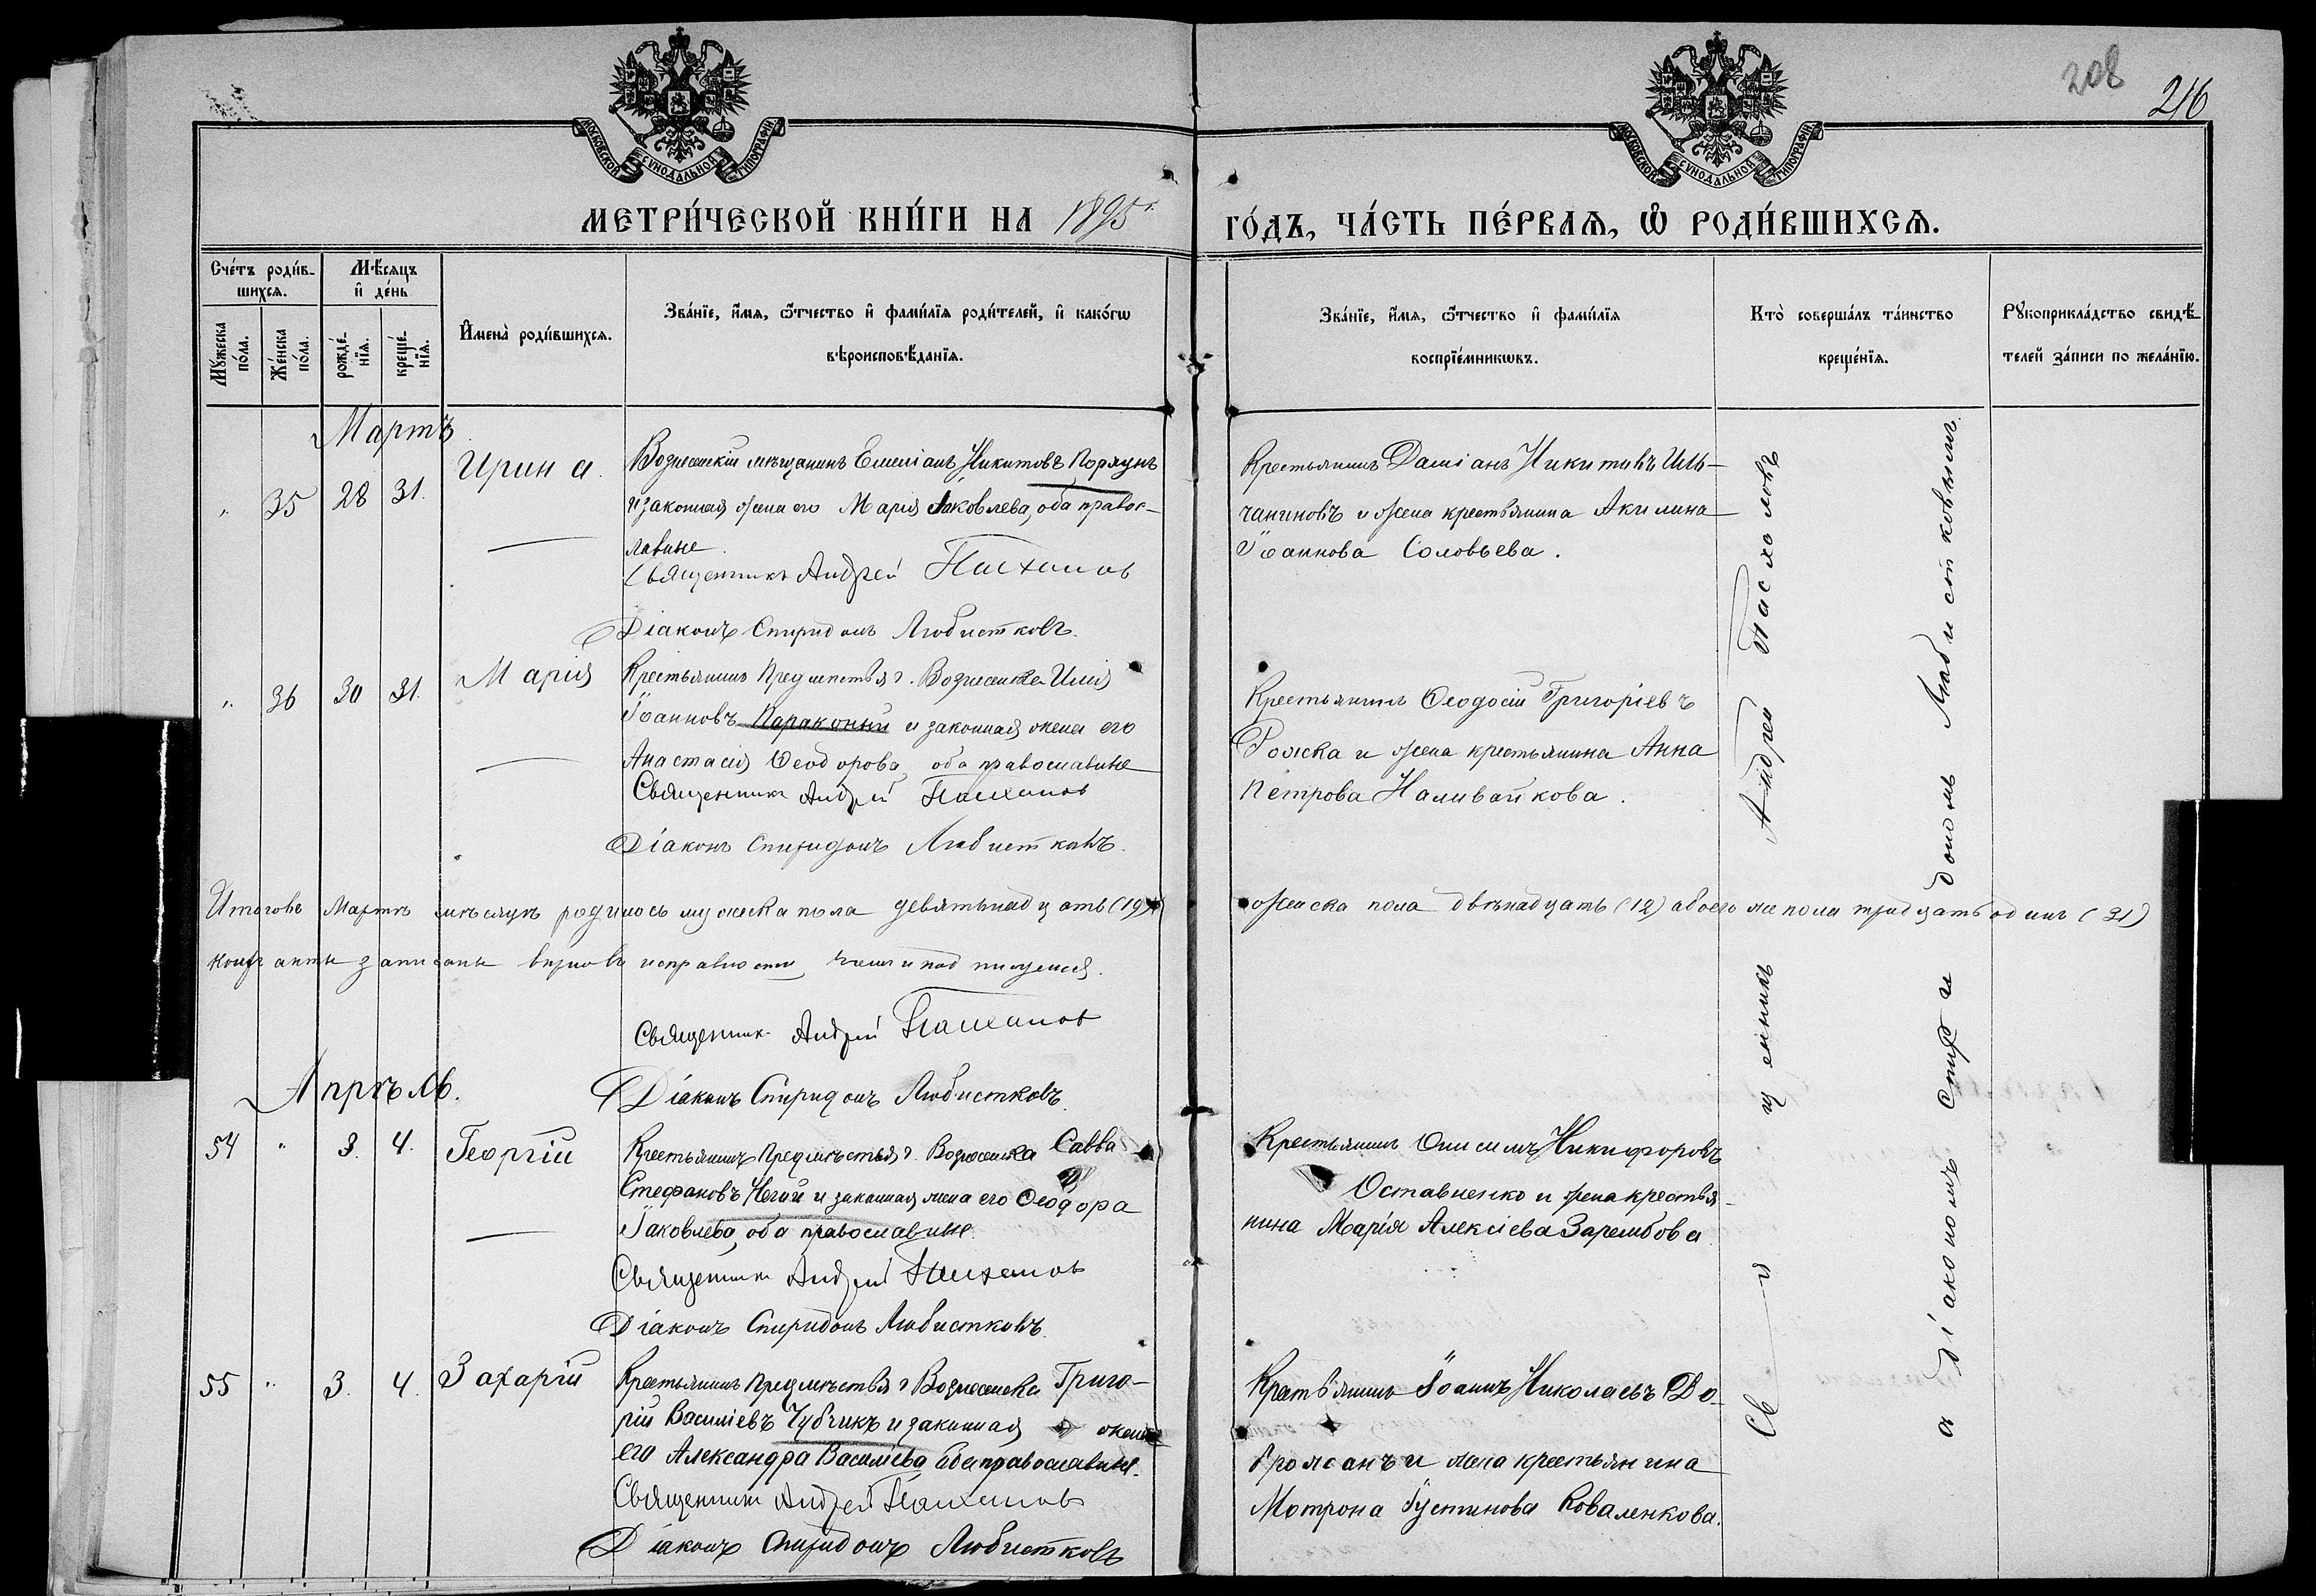 208
216
МОСКОВСКОЙ СѴНОДАЛЬНОЙ ТИПОГРАФІИ
МОСКОВСКОЙ СѴНОДАЛЬНОЙ ТИПОГРАФІИ
МЕТРИ́ЧЕСКОЙ КНИ́ГИ НА 1895 г. ГО́ДЪ, ЧА́СТЬ ПЕ́РВАѦ, Ѡ҆ РОДИ́ВШИХСѦ.
Сче́тъ роди́в-
шихсѧ.
Мꙋ́жеска по́ла.
Же́нска по́ла.
Мѣ́сѧцъ
и҆ де́нь
рожде́-нїѧ.
креще́-нїѧ.
И҆мена̀ роди́вшихсѧ.
Зва́нїе, и҆́мѧ, ѻ҆́тчество и҆ фами́лїѧ роди́телей, и҆ како́гѡ
вѣроисповѣ́данїѧ.
Зва́нїе, и҆́мѧ, ѻ҆́тчество и҆ фами́лїѧ
воспрїе́мникѡвъ.
Кто̀ соверша́лъ та́инство
креще́нїѧ.
Рꙋкоприкла́дство свидѣ́-
телей за́писи по жела́нїю.
Мартъ
" 35 28 31. Ирина.
Вознесенскій мѣщанинъ Емеліанъ Никитовъ Порядунъ
и законная жена его Марія Яковлева, оба правос-
лавные.
Священникъ Андрей Пасхалов
Діаконъ Спиридонъ Любистковъ.
Крестьянинъ Даміанъ Никитовъ Иль-
чаниновъ и жена крестьянина Акилина
Іоаннова Соловьева.
" 36 30 31. Марія
Крестьянинъ Предмѣстья г. Вознесенска Илія
Іоанновъ Параконный и законная жена его
Анастасія Ѳеодорова, оба православные
Священник Андрей Пасхалов
Діаконъ Спиридонъ Любистковъ.
Крестьянинъ Ѳеодосій Григоріевъ
Рожка и жена крестьянина Анна
Петрова Наливайкова.
Итого въ Мартѣ мѣсяцѣ родилось мужеска пола девятьнадцать (19) женска пола двѣнадцать (12) а обоего же пола тридцать одинъ (31)
коихъ акты записаны вѣрно въ исправности чемъ и подписуемся.
Священник Андрей Пасхалов
Діаконъ Спиридонъ Любистковъ.
Апрѣль.
54 " 3. 4. Георгій
Крестьянинъ Предмѣстья г. Вознесенска Савва
Стефановъ Негий и законная жена его Ѳеодора
Іаковлева, оба православные.
Священник Андрей Пасхалов
Діаконъ Спиридонъ Любистковъ.
Крестьянинъ Онисимъ Никифоровъ
Оставненко и жена крестья-
нина Марія Алексіева Зарембова
55 " 3. 4. Захарій
Крестьянинъ Предмѣстья г. Вознесенска Григо-
рій Василіевъ Чубчикъ и законная жена
его Александра Василіева оба православные.
Священник Андрей Пасхалов
Діаконъ Спиридонъ Любистковъ
Крестьянинъ Іоаннъ Николаевъ До-
брожанъ и жена крестьянина
Мотрона Іустинова Коваленкова.
Священникъ Андрей Пасхаловъ
съ діакономъ Спиридономъ Любистковымъ.